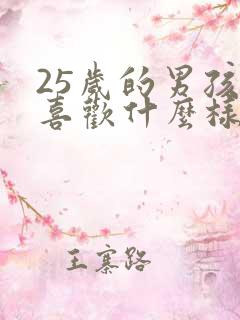 25歲的男孩
喜歡什麼樣
王寨路